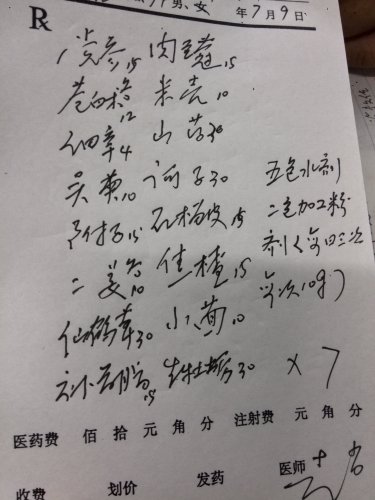 男、女 年7月9日
R
党参15 肉豆蔻15
苍白术各12 米壳10
细辛4 山药30
吴萸10 诃子30
附子15 石榴皮15 二色加工粉
二姜各10 焦楂15 每次10g)
仙鹤草30 小茴10
补骨脂15 生牡蛎30 ×7
医药费 佰 拾 元 角 分 注射费 元 角 分
收费 划价 发药 医师